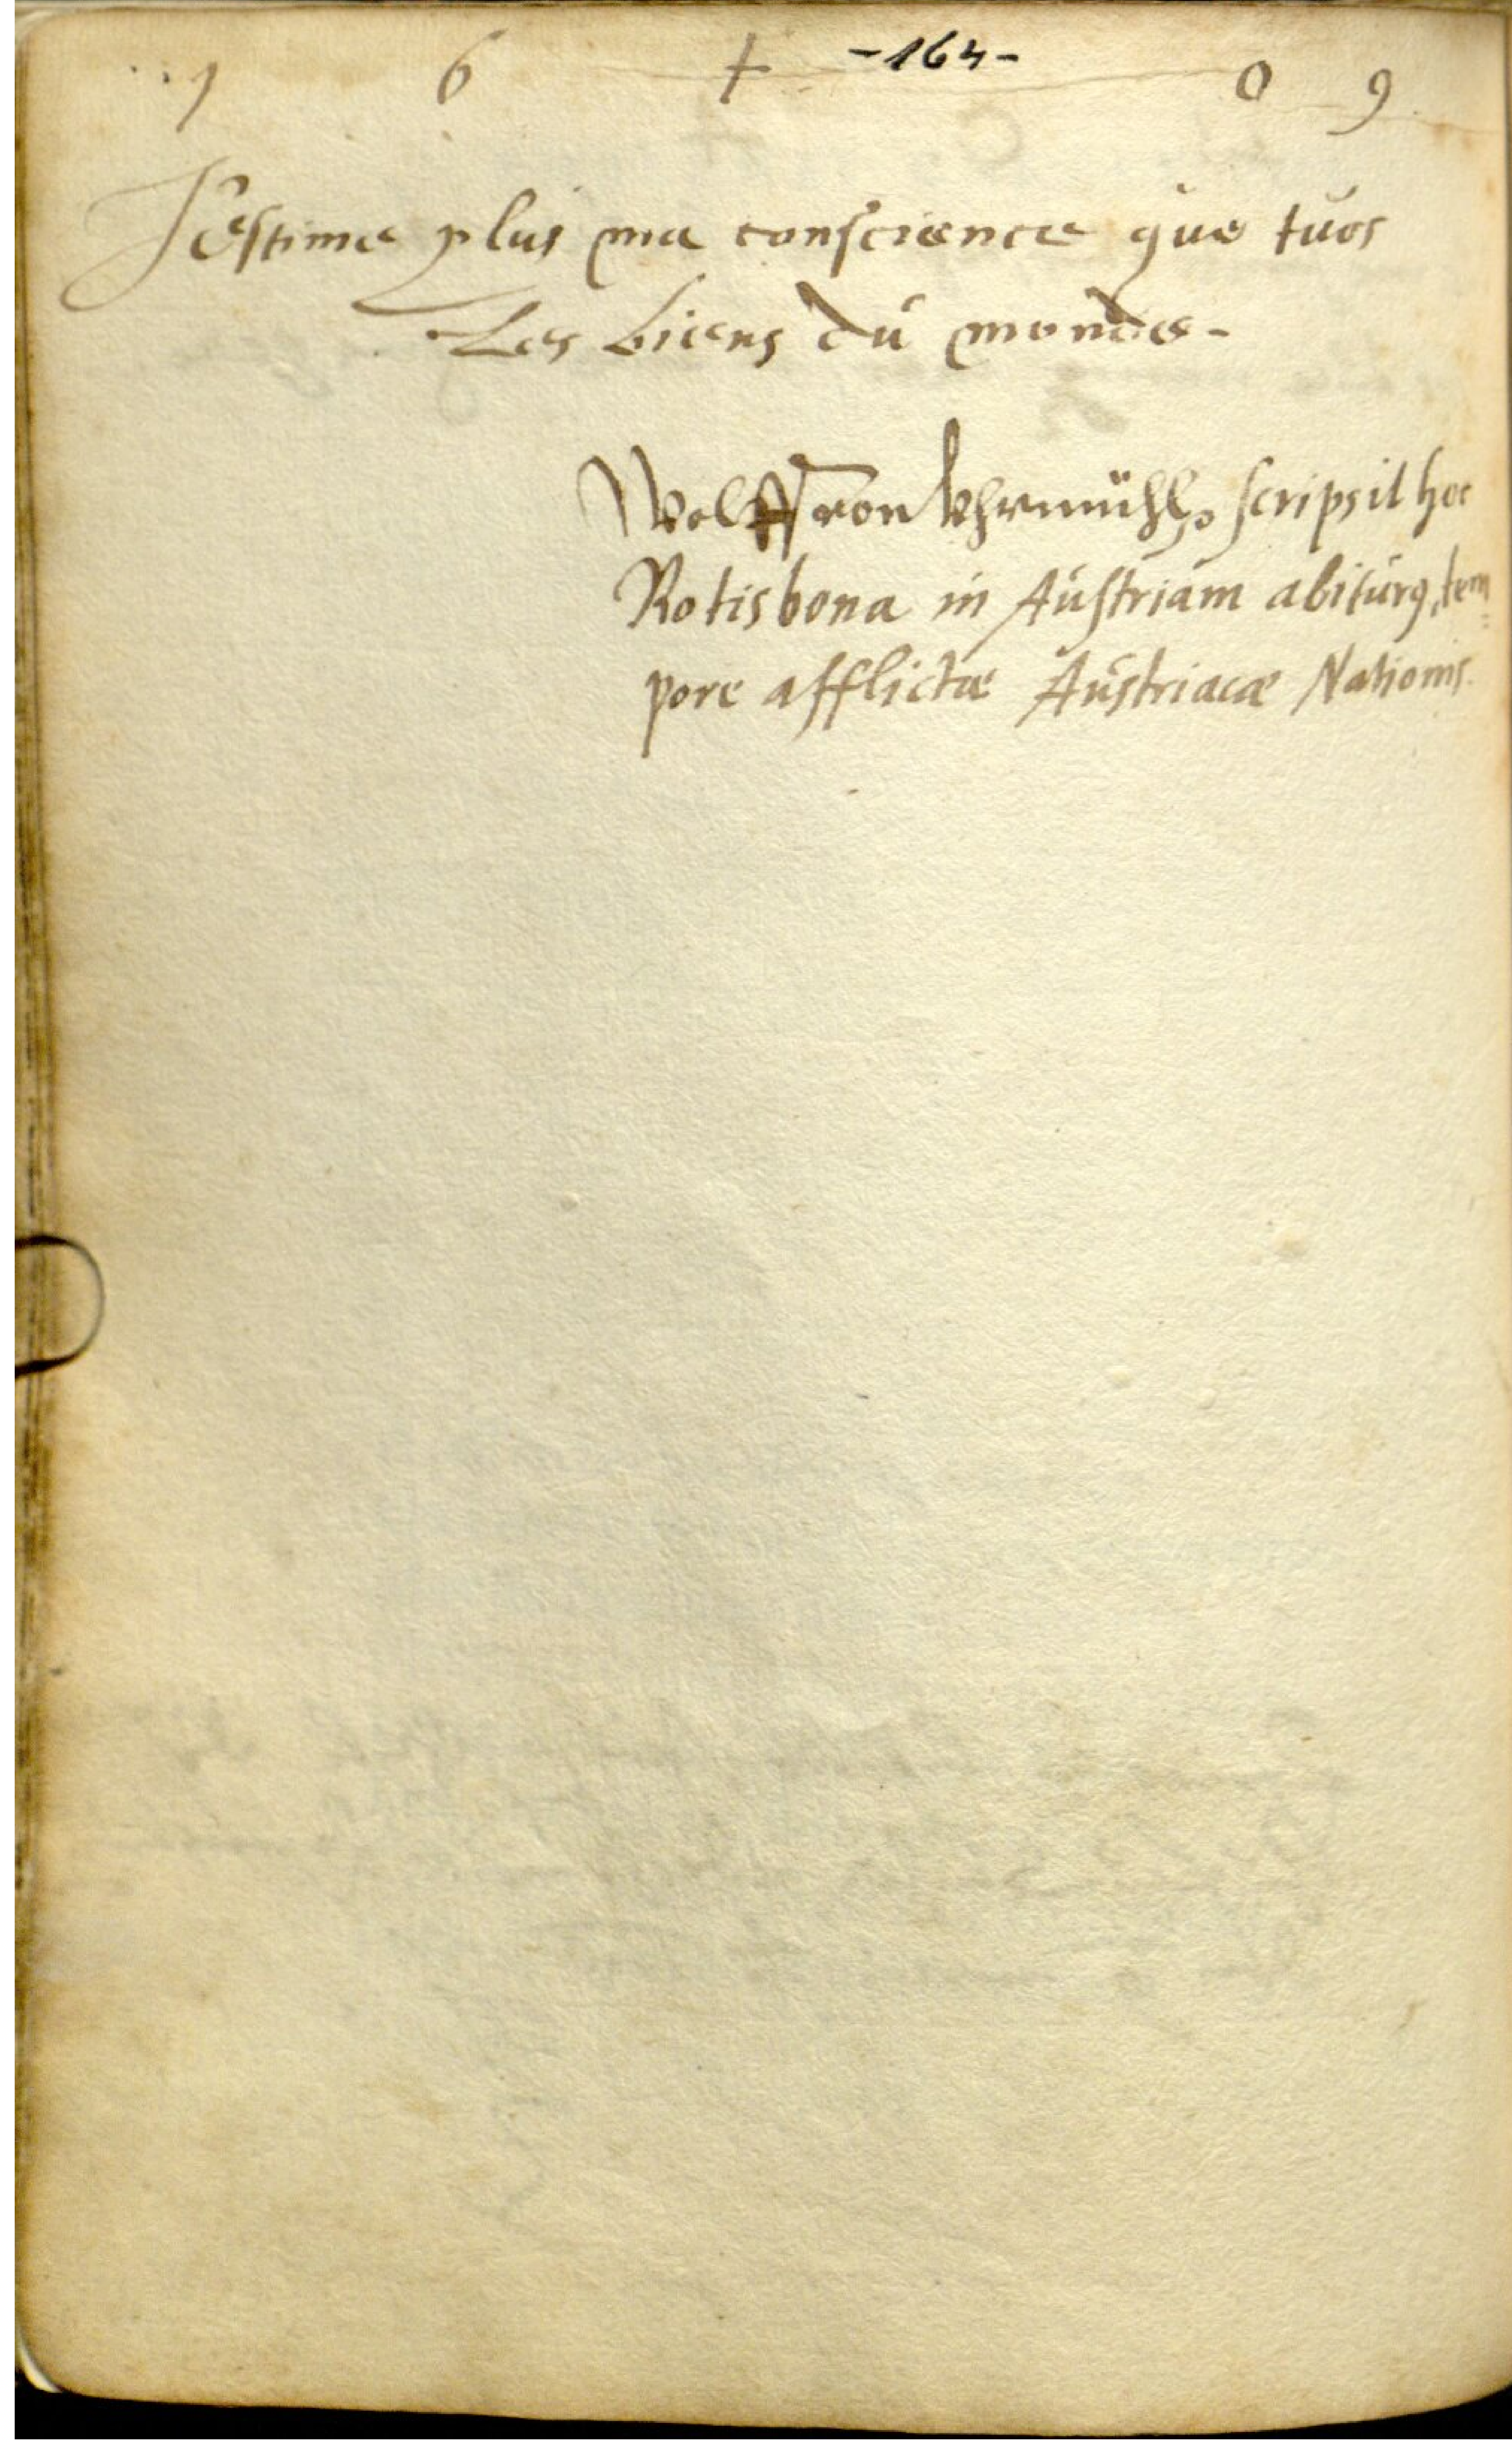 1 6 + -164- 0 9
J'estime plus ma conscience que tuos
Les biens du monde-
Wolff von scripsit hoc
Rotisbona in Austriam abiturus, tem=
pore afflictæ Austriacæ Nationis.